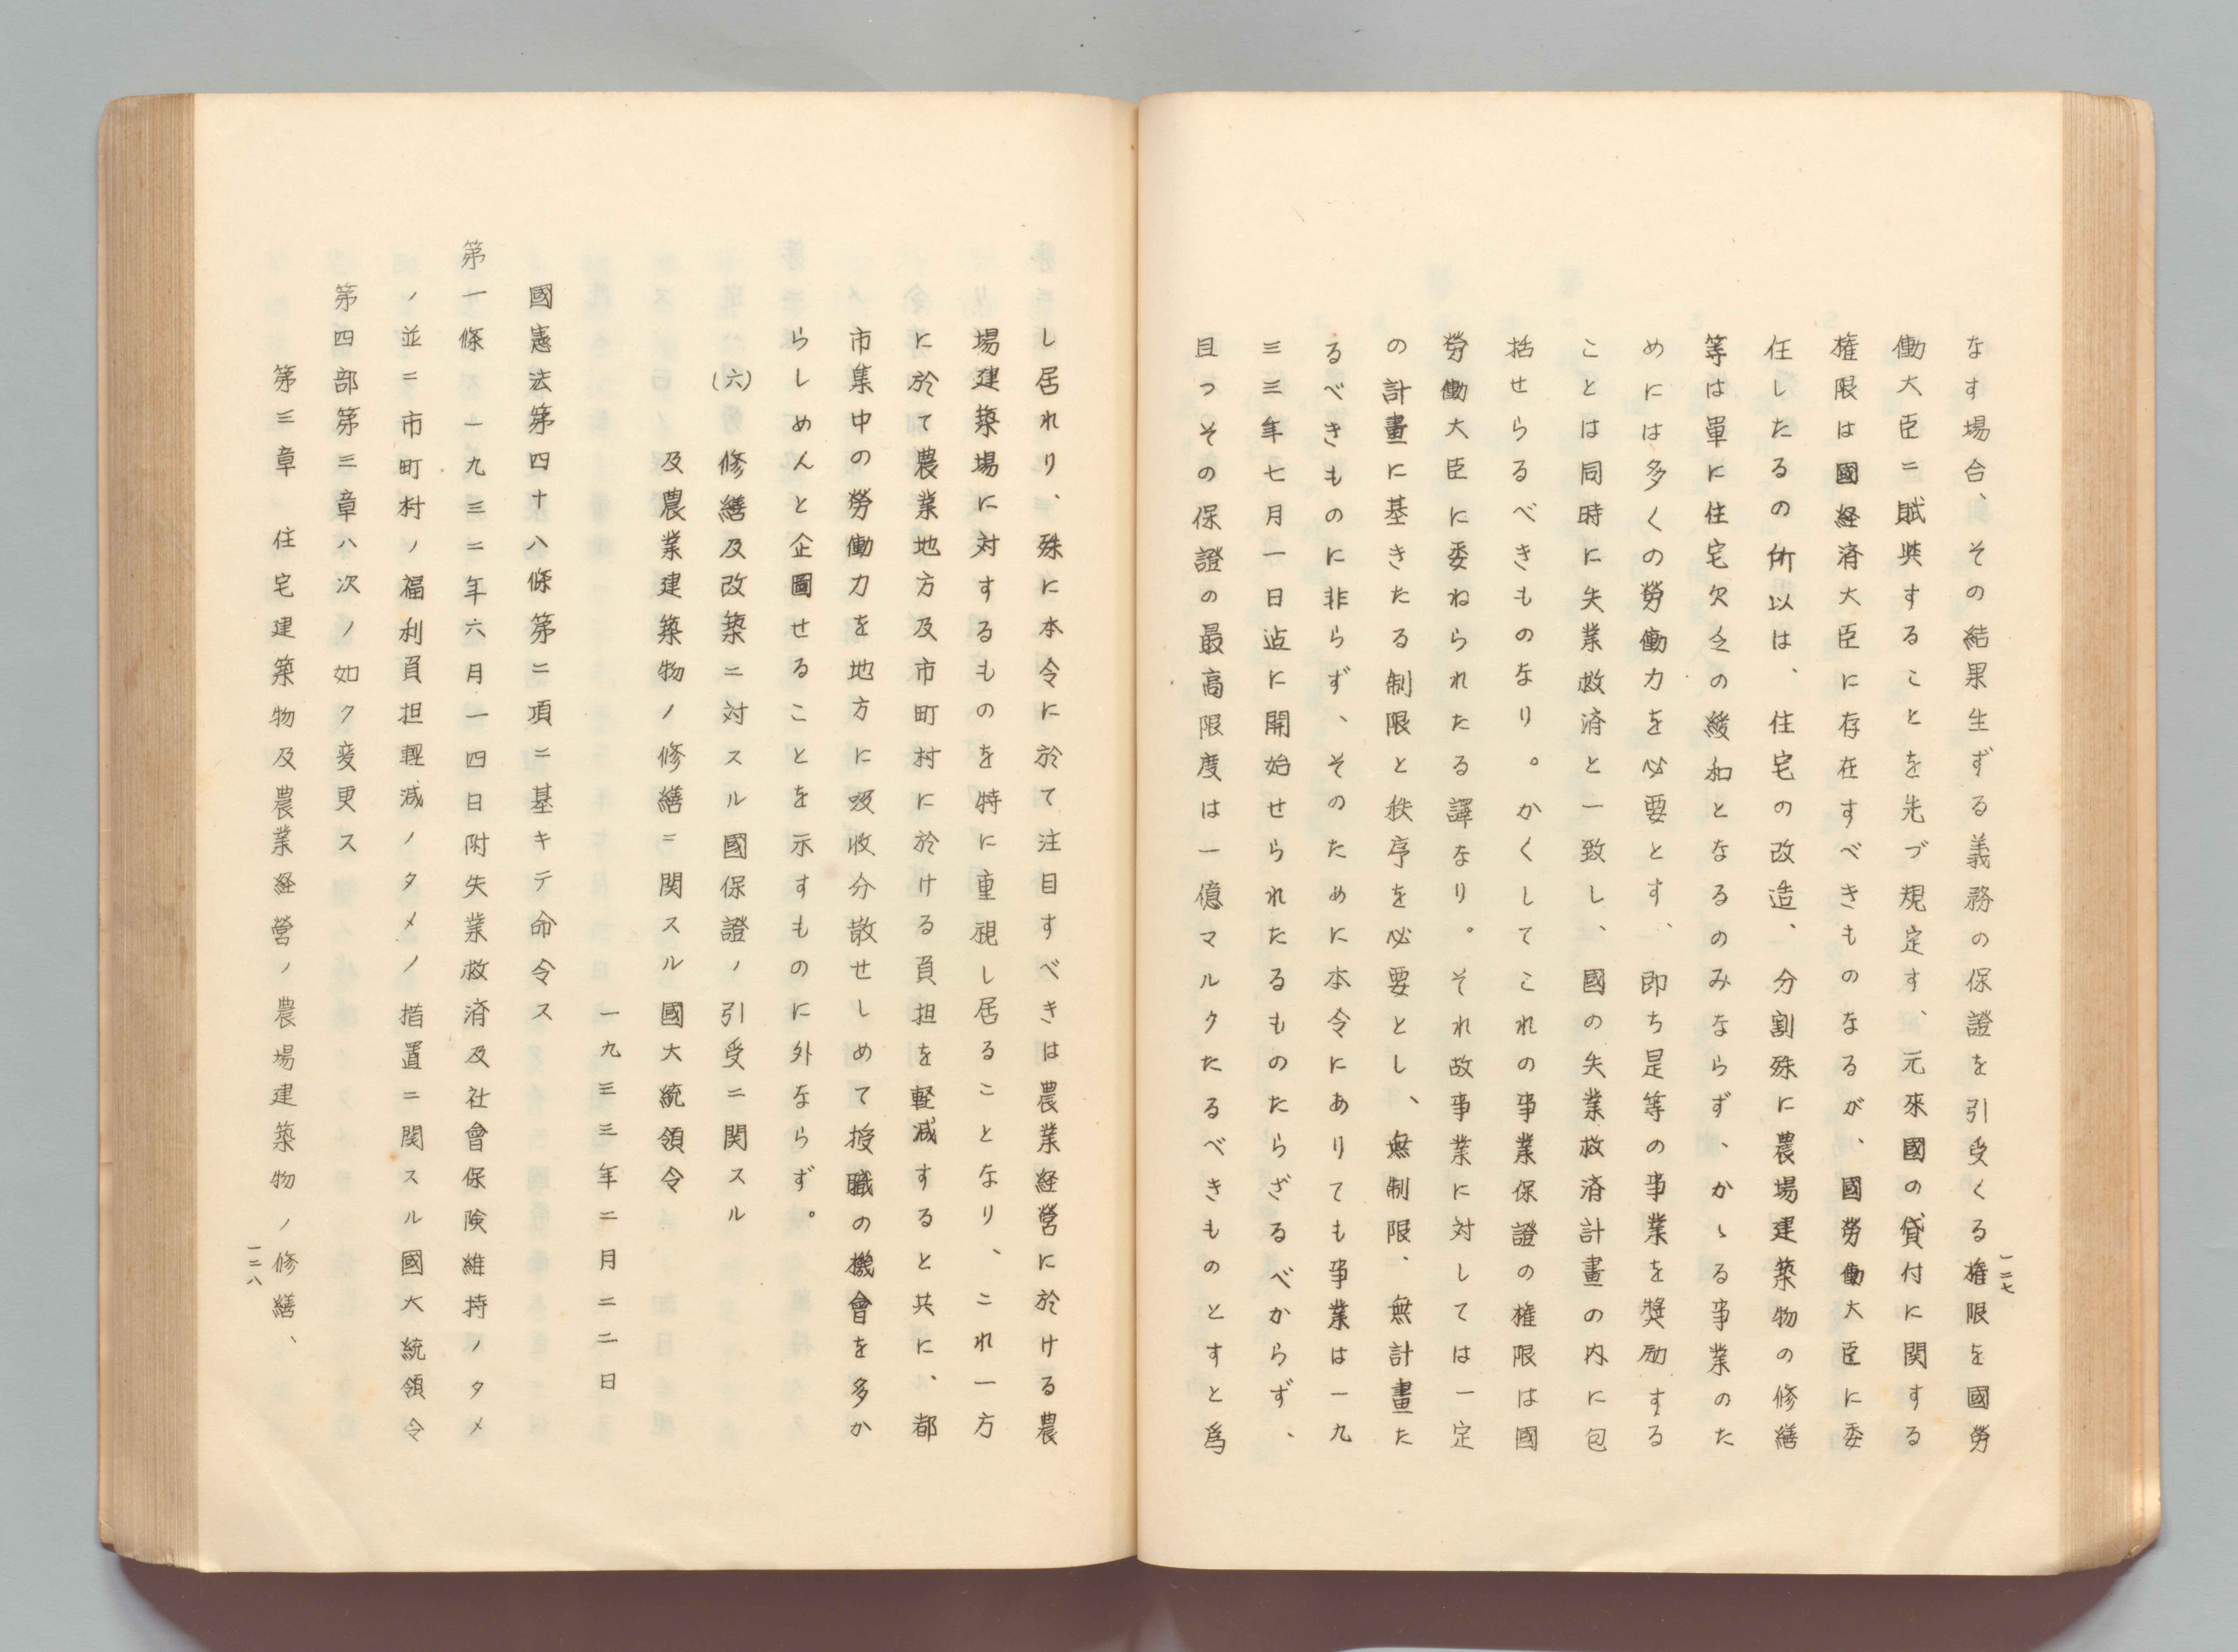 なす場合、その結果生ずる義務の保證を引受くる権限を國勞
働大臣ニ賦與することを先づ規定す、元來國の貸付に関する
権限は國経済大臣に存在すべきものなるが、國勞働大臣に委
任したるの所以は、住宅の改造、分割殊に農場建築物の修繕
等は單に住宅欠乏の緩和となるのみならず、かゝる事業のた
めには多くの勞働力を必要とす、即ち是等の事業を奨励する
ことは同時に失業救済と一致し、國の失業救済計畫の内に包
括せらるべきものなり。かくしてこれの事業保證の権限は國
勞働大臣に委ねられたる譯なり。それ故事業に対しては一定
の計畫に基きたる制限と秩序を必要とし、無制限、無計畫た
るべきものに非らず、そのために本令にありても事業は一九
三三年七月一日迠に開始せられたるものたらざるべからず、
且つその保證の最高限度は一億マルクたるべきものとすと為
一二七
し居れり、殊に本令に於て注目すべきは農業経営に於ける農
場建築場に対するものを特に重視し居ることなり、これ一方
に於て農業地方及市町村に於ける負担を軽減すると共に、都
市集中の勞働力を地方に吸收分散せしめて授職の機會を多か
らしめんと企圖せることを示すものに外ならず。
(六) 修繕及改築ニ対スル國保證ノ引受ニ関スル
及農業建築物ノ修繕ニ関スル國大統領令
一九三三年二月二二日
國憲法第四十八條第二項ニ基キテ命令ス
第一條 一九三二年六月一四日附失業救済及社會保険維持ノタメ
ノ並ニ市町村ノ福利負担軽減ノタメノ措置ニ関スル國大統領令
第四部第三章ハ次ノ如ク変更ス
第三章 住宅建築物及農業経営ノ農場建築物ノ修繕、
一二八